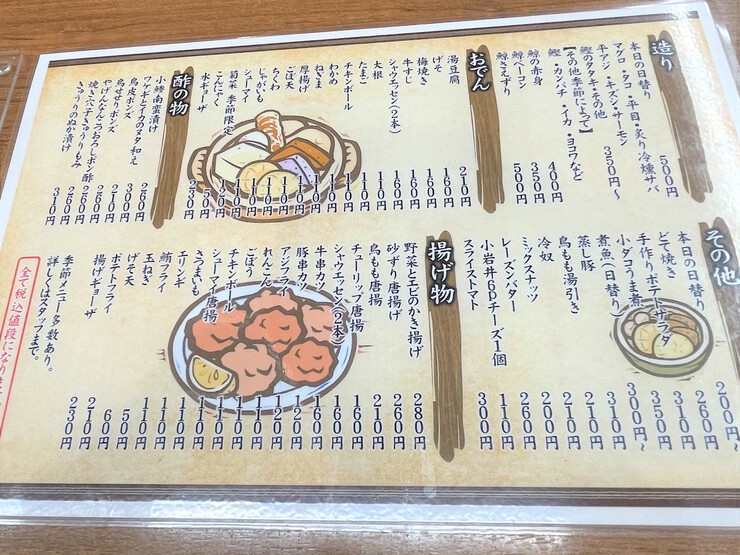 造り
本日の日替り 500円
マグロ・タコ・平目・炙り冷燻サバ
平アジ・キズシ・サーモン
鰹のタタキ・その他 350円〜
【その他季節によって】
鰹・カンパチ・イカ・ヨコワなど
鯨の赤身 400円
鯨ベーコン 350円
鯨さえずり 500円
おでん
湯豆腐 210円
げそ 160円
梅焼き 160円
牛すじ 160円
シャウエッセン(2本) 160円
大根 110円
たまご 110円
チキンボール 110円
わかめ 110円
ねぎま 110円
厚揚げ 110円
ごぼ天 110円
ちくわ 110円
じゃがいも 110円
シューマイ 110円
菊菜 季節限定
こんにゃく
水ギョーザ
酢の物
小鯵南蛮漬け 260円
ワケギとイカのヌタ和え 300円
鳥皮ポンズ 210円
鳥せせりポンズ 210円
やげんなんこつおろしポン酢 260円
焼き穴子きゅうりもみ 260円
きゅうりのぬか漬け 310円
その他
本日の日替り 200円〜
どて焼き 260円
手作りポテトサラダ 310円
小ダコうま煮 350円
煮魚(日替り) 300円〜
蒸し豚 310円
鳥もも湯引き 210円
冷奴 210円
ミックスナッツ 200円
レーズンバター 210円
小岩井6Dチーズ1個 110円
スライストマト 300円
揚げ物
野菜とエビのかき揚げ 280円
砂ずり唐揚 260円
鳥もも唐揚 210円
チューリップ唐揚 160円
シャウエッセン(2本) 160円
牛串カツ 160円
豚串カツ 120円
アジフライ 110円
れんこん 110円
ごぼう 110円
チキンボール 110円
シューマイ唐揚 110円
さつまいも 110円
エリンギ 110円
鮪フライ 110円
玉ねぎ 110円
げそ天 50円
ポテトフライ 60円
揚げギョーザ 210円
230円
季節メニュー多数あり。
詳しくはスタッフまで。
全て税込値段になりま